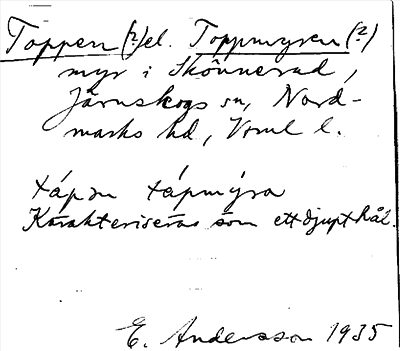 Toppen (?) el. Toppmyren (?)
myr i Skönnerud,
Järnskogs sn, Nord-
marks hd, Vrml l.
tápən tápmýra
Karakteriseras som ett djupt hål.
E. Andersson 1935